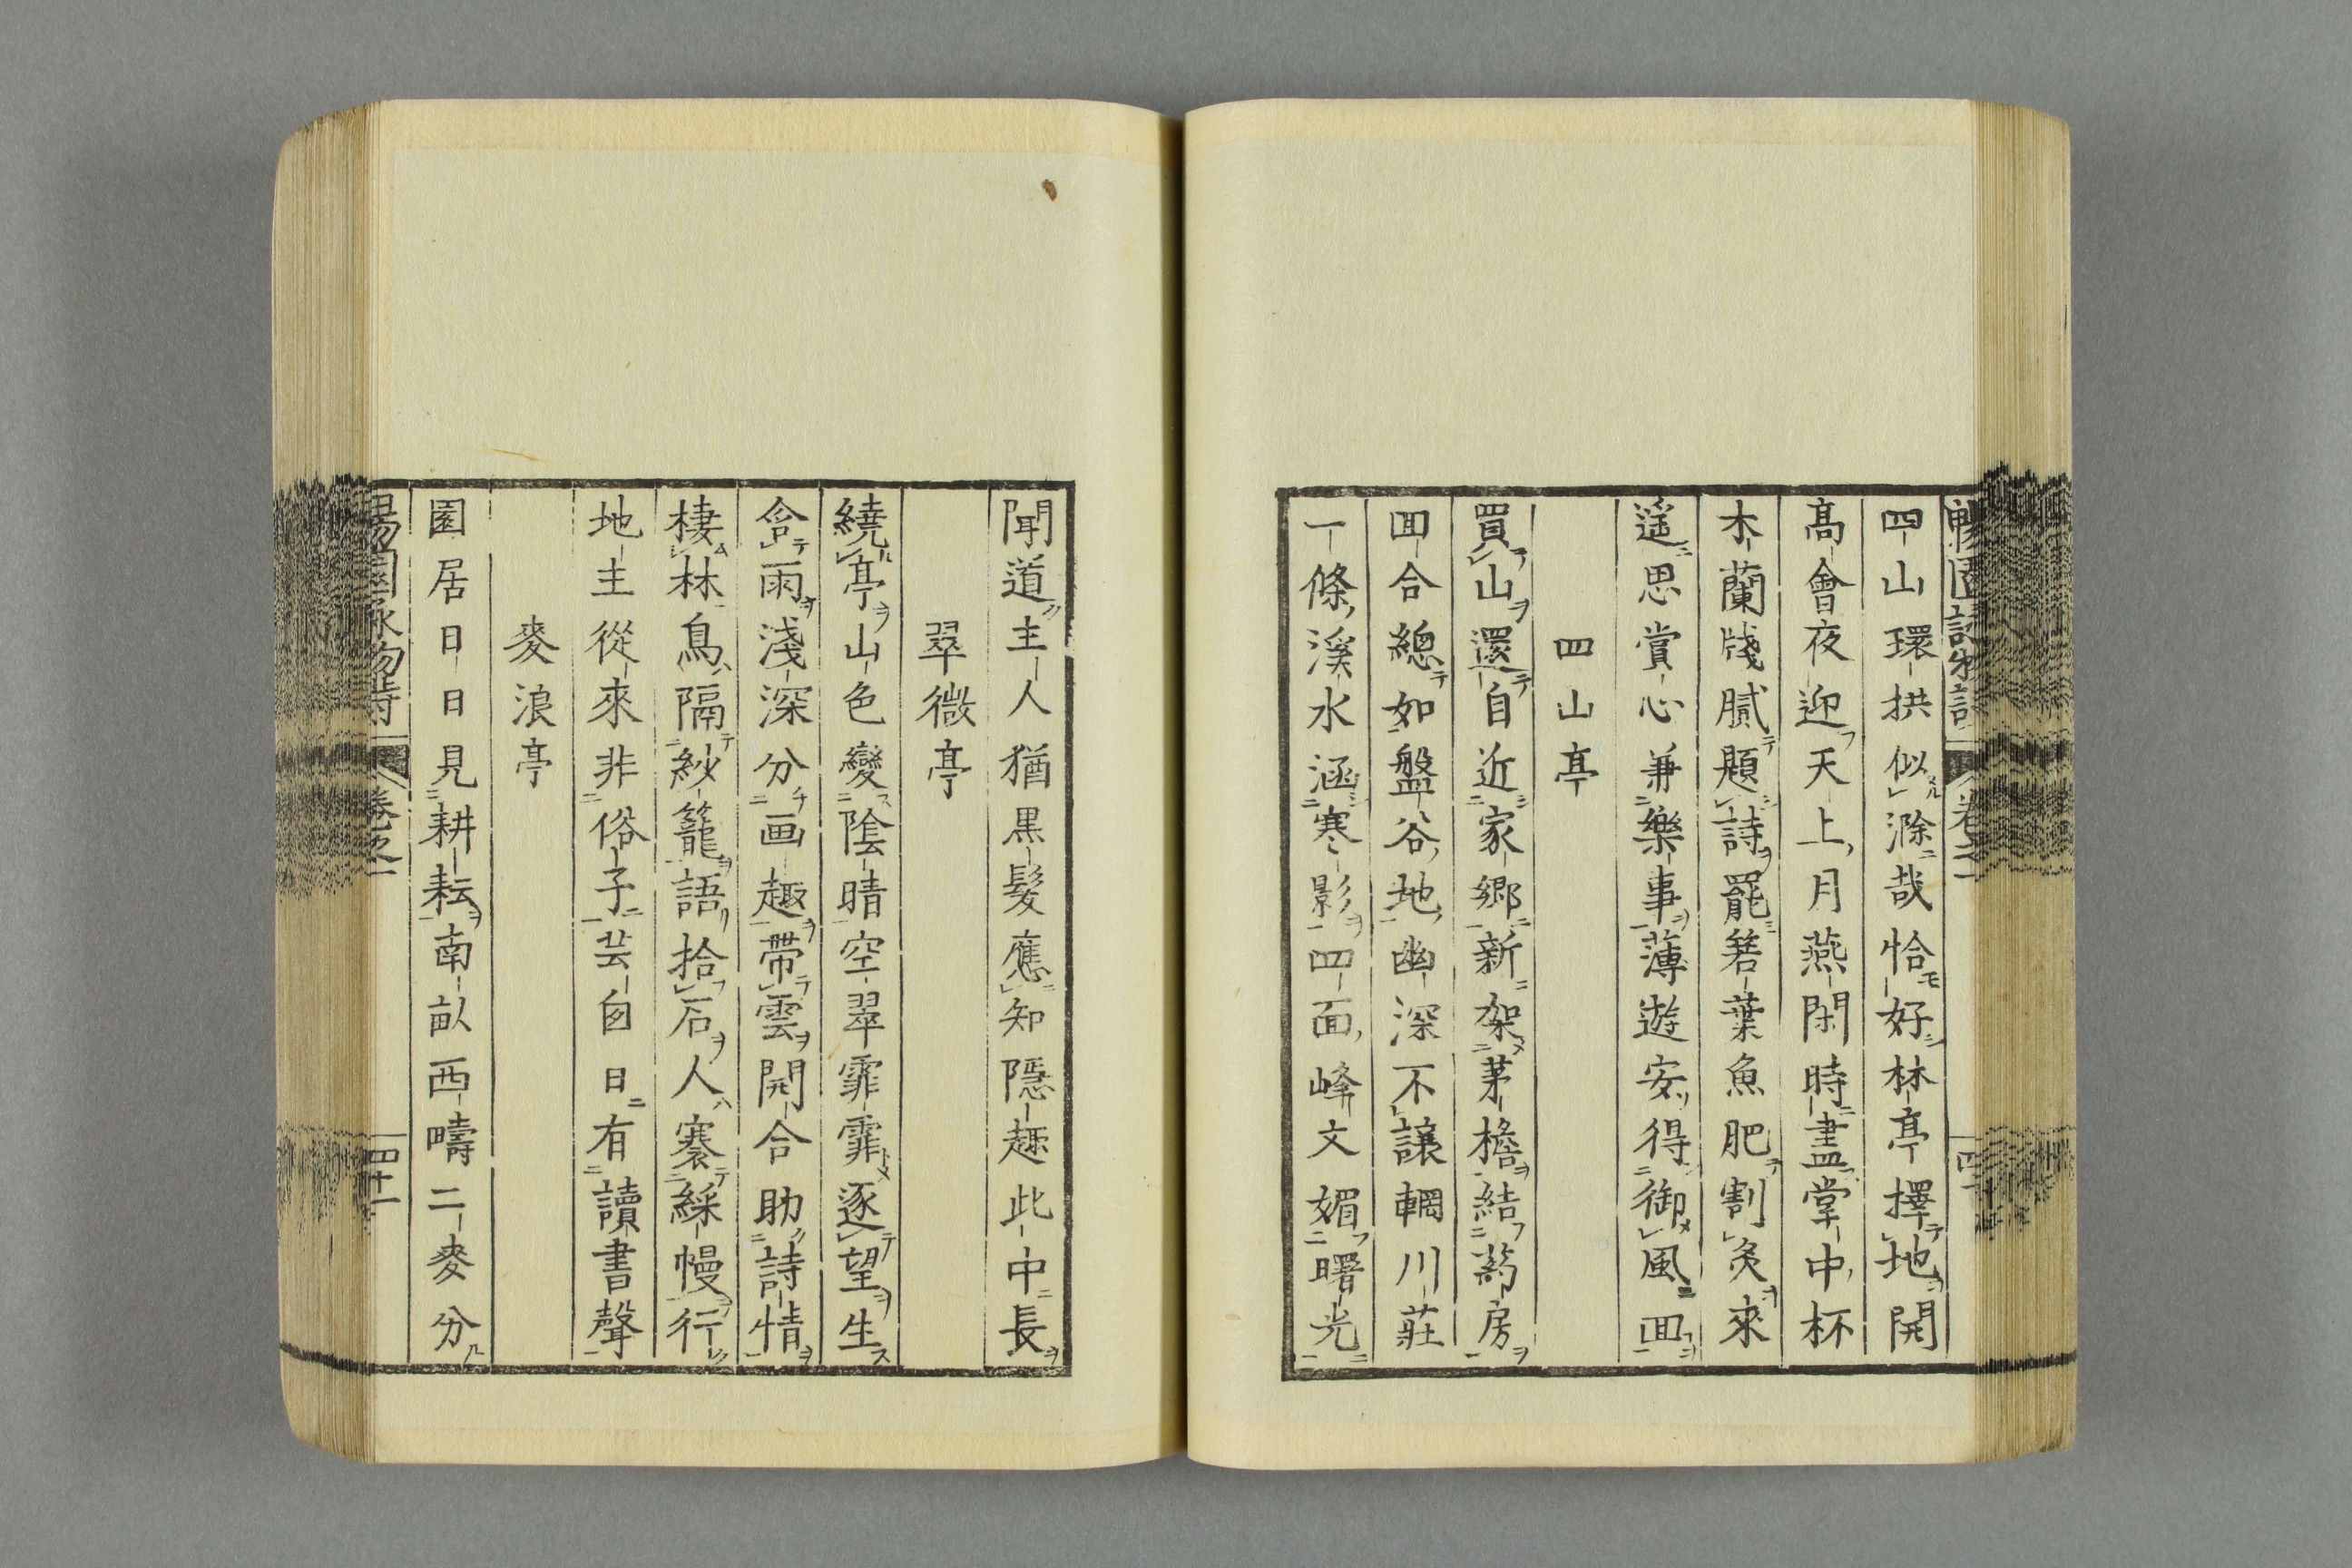 四山環拱似滁哉恰好林亭擇地開
高會夜迎天上月燕閑時盡掌中杯
木蘭牋膩題詩罷箬葉魚肥割炙來
遥思賞心兼樂事薄遊安得御風回
四山亭
買山還自近家郷新架茅檐結葯房
回合總如盤谷地幽深不讓輞川莊
一條溪水涵寒影四面峰文媚曙光
聞道主人猶黒髮應知隱趣此中長
翠微亭
繞亭山色變陰晴空翠霏霏逐望生
含雨淺深分画趣帶雲開合助詩情
棲林鳥隔紗籠語拾石人褰綵幔行
地主從來非俗子芸自日有讀書聲
麥浪亭
園居日日見耕耘南畝西疇二麥分
卷之一
四十一